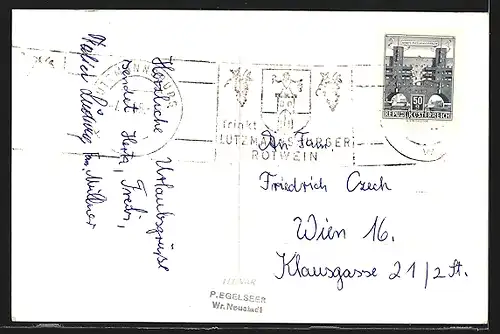 Herzliche Urlaubsgrüße
sendet Herta, Fredi,
Ludwig
trinkt
LUTZMANNSBURGER
ROTWEIN
50
REPUBLIK ÖSTERREICH
An Fam.
Friedrich Czech
Wien 16.
Klausgasse 21/2 St.
P. EGELSEER
Wr. Neustadt